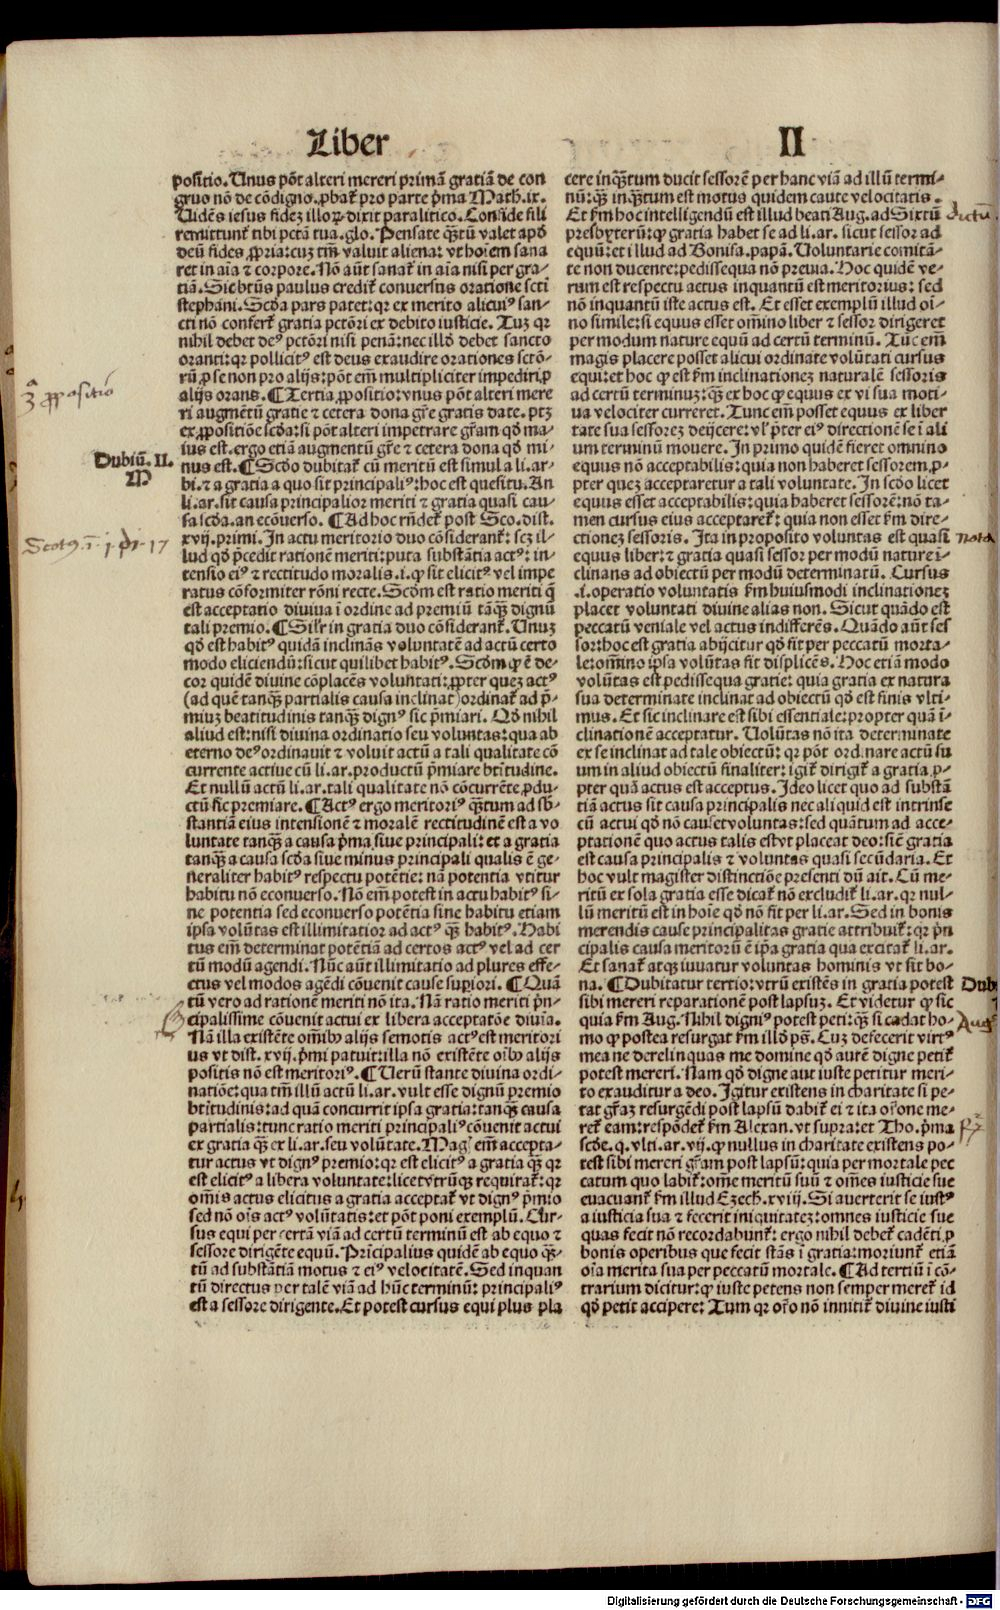 Liber
II
positio. Unus põt alteri mereri primã gratiã de con
gruo nõ de cõdigno. ꝓbat᷑ pro parte ṗma Math. ix.
Uidẽs iesus fidez illoꝝ dixit paralitico. Confide fili
remittunt᷑ tibi pctã tua. glo. Pensate q̃tũ valet apđ
deũ fides ꝓpria: cuz tm̃ valuit aliena: vt hoiem sana
ret in aĩa ⁊ corpore. Nõ aũt sanat᷑ in aĩa nisi per gra-
tiã. Sic btũs paulus credit᷑ conversus oratione scti
stephani. Scđa pars patet: qꝛ ex merito alicuiꝰ san-
cti nõ confert᷑ gratia pctõri ex debito iusticie. Tuz qꝛ
nihil debet deꝰ pctõri nisi penã: nec illđ debet sancto
oranti: qꝛ pollicitꝰ est deus exaudire orationes sctõ-
rũ ꝓ se non pro alijs: põt em̃ multipliciter impediri ꝓ
alijs orans. ¶ Tertia ꝓpositio: vnus põt alteri mere
ri augmẽtũ gratie ⁊ cetera dona gr̃e gratis date. ptꝫ
ex ꝓpositiõe scđa: si põt alteri impetrare gr̃am qđ ma-
ius est. ergo etiã augmentũ gr̃e ⁊ cetera dona qđ mi-
nus est. ¶ Scđo dubitat᷑ cũ meritũ est simul a li. ar-
bi. ⁊ a gratia a quo sit principaliꝰ: hoc est quesitu. An
li. ar. sit causa principalior meriti ⁊ gratia quasi cau-
sa scđa. an ecõuerso. ¶ Ad hoc rñdet᷑ post Sco. dist.
xvij. primi. In actu meritorio duo cõsiderant᷑: scꝫ il-
lud qđ p̃cedit rationẽ meriti: puta substãtia actꝰ: in-
tensio eiꝰ ⁊ rectitudo moralis. i. ꝙ sit elicitꝰ vel impe
ratus cõformiter rõni recte. Scđm est ratio meriti q̃
est acceptatio diuina ĩ ordine ad premiũ tãq̃ dignũ
tali premio. ¶ Silr̃ in gratia duo cõsiderant᷑. Unuz
qđ est habitꝰ quidã inclinãs voluntatẽ ad actũ certo
modo eliciendũ: sicut quilibet habitꝰ. Scđm ꝙ ẽ de-
cor quidẽ diuine cõplacẽs voluntati: ꝓpter quez actꝰ
(ad quẽ tanq̃ partialis causa inclinat) ordinat᷑ ad p̃-
miuz beatitudinis tanq̃ dignꝰ sic p̃miari. Qđ nihil
aliud est: nisi diuina ordinatio seu voluntas: qua ab
eterno deꝰ ordinauit ⁊ voluit actũ a tali qualitate cõ
currente actiue cũ li. ar. productũ p̃miare bt̃itudine.
Et nullũ actũ li. ar. tali qualitate nõ cõcurrẽte ꝓdu-
ctũ sic premiare. ¶ Actꝰ ergo meritoriꝰ q̃tum ad sb̃-
stantiã eius intensionẽ ⁊ moralẽ rectitudinẽ est a vo
luntate tanq̃ a causa p̃ma siue principali: et a gratia
tanq̃ a causa scđa siue minus principali qualis ẽ ge-
neraliter habitꝰ respectu potẽtie: nã potentia vtitur
habitu nõ econuerso. Nõ em̃ potest in actu habitꝰ si-
ne potentia sed econuerso potẽtia sine habitu etiam
ipsa volũtas est illimitatior ad actꝰ q̃ habitꝰ. Habi
tus em̃ determinat potẽtiã ad certos actꝰ vel ad cer
tũ modũ agendi. Nũc aũt illimitatio ad plures effe-
ctus vel modos agẽdi cõuenit cause suꝑiori. ¶ Quã
tũ vero ad rationẽ meriti nõ ita. Nã ratio meriti p̃n-
cipalissime cõuenit actui ex libera acceptatõe diuĩa.
Nã illa existẽte om̃ibꝰ alijs semotis actꝰ est meritori
us vt dist. xvij. p̃mi patuit: illa nõ existẽte oĩbꝰ alijs
positis nõ est meritoriꝰ. ¶ Uerũ stante diuina ordi-
natiõe: qua tm̃ illũ actũ li. ar. vult esse dignũ premio
bt̃itudinis: ad quã concurrit ipsa gratia: tanq̃ causa
partialis: tunc ratio meriti principaliꝰ cõuenit actui
ex gratia q̃ ex li. ar. seu volũtate. Magꝭ em̃ accepta-
tur actus vt dignꝰ premio: qꝛ est elicitꝰ a gratia q̃ qꝛ
est elicitꝰ a libera voluntate: licet vtrũqꝫ requirat᷑: qꝛ
om̃is actus elicitus a gratia acceptat᷑ vt dignꝰ p̃mio
sed nõ oĩs actꝰ volũtatis: et põt poni exemplũ. Cur-
sus equi per certã viã ad certũ terminũ est ab equo ⁊
sessore dirigẽte equũ. Principalius quidẽ ab equo q̃-
tũ ad substãtiam motus ⁊ eiꝰ velocitatẽ. Sed inquan
tũ directus per talẽ viã ad hũc terminũ: principaliꝰ
est a sessore dirigente. Et potest cursus equi plus pla
cere inq̃tum ducit sessorẽ per hanc viã ad illũ termi-
nũ: q̃ inq̃tum est motus quidem caute velocitatis.
Et ẜm hoc intelligendũ est illud beati Aug. ad Sixtũ
presbyterũ: ꝙ gratia habet se ad li. ar. sicut sessor ad
equũ: et illud ad Bonifa. papã. Uoluntarie comitã-
te non ducente: pedissequa nõ preuia. Hoc quidẽ ve-
rum est respectu actus inquantũ est meritorius: sed
nõ inquantũ iste actus est. Et esset exemplũ illud oĩ-
no simile: si equus esset om̃ino liber ⁊ sessor dirigeret
per modum nature equũ ad certũ terminũ. Tũc em̃
magis placere posset alicui ordinate volũtati cursus
equi: et hoc ꝙ est ẜm inclinationez naturalẽ sessoris
ad certũ terminuz: q̃ ex hoc ꝙ equus ex vi sua moti-
ua velociter curreret. Tunc em̃ posset equus ex liber
tate sua sessorez deijcere: vl̃ p̃ter eiꝰ directionẽ se ĩ ali
um terminũ mouere. In primo quidẽ fieret omnino
equus nõ acceptabilis: quia non haberet sessorem, ꝓ-
pter quez acceptaretur a tali voluntate. In scđo licet
equus esset acceptabilis: quia haberet sessorẽ: nõ ta-
men cursus eius acceptaret᷑: quia non esset ẜm dire-
ctionez sessoris. Ita in proposito voluntas est quasi
equus liber: ⁊ gratia quasi sessor per modũ nature ĩ-
clinans ad obiectũ per modũ determinatũ. Cursus
.i. operatio voluntatis ẜm huiusmodi inclinationez
placet voluntati diuine alias non. Sicut quãdo est
peccatũ veniale vel actus indifferẽs. Quãdo aũt ses
sor: hoc est gratia abijcitur qđ fit per peccatũ morta-
le: om̃ino ipsa volũtas fit displicẽs. Hoc etiã modo
volũtas est pedissequa gratie: quia gratia ex natura
sua determinate inclinat ad obiectũ qđ est finis vlti-
mus. Et sic inclinare est sibi essentiale: propter quã ĩ-
clinationẽ acceptatur. Uolũtas nõ ita determinate
ex se inclinat ad tale obiectũ: qꝛ põt ordinare actũ su
um in aliud obiectũ finaliter: igit᷑ dirigit᷑ a gratia ꝓ-
pter quã actus est acceptus. Ideo licet quo ad substã
tiã actus sit causa principalis nec aliquid est intrinse
cũ actui qđ nõ causet voluntas: sed quãtum ad acce-
ptationẽ quo actus talis est vt placeat deo: sic ẽ gratia
est causa principalis ⁊ voluntas quasi secũdaria. Et
hoc vult magister distinctiõe presenti dũ ait. Cũ me-
ritũ ex sola gratia esse dicat᷑ nõ excludit᷑ li. ar. qꝛ nul-
lũ meritũ est in hoĩe qđ nõ fit per li. ar. Sed in bonis
merendis cause principalitas gratie attribuit᷑: qꝛ p̃n
cipalis causa meritorũ ẽ ip̃a gratia qua excitat᷑ li. ar.
Et sanat᷑ atqꝫ iuuatur voluntas hominis vt sit bo-
na. ¶ Dubitatur tertio: vtrũ existẽs in gratia potest
sibi mereri reparationẽ post lapsuz. Et videtur ꝙ sic
quia ẜm Aug. Nihil digniꝰ potest peti: q̃ si cadat ho-
mo ꝙ postea resurgat ẜm illđ pš. Cuz defecerit virtꝰ
mea ne derelinquas me domine qđ autẽ digne petit᷑
potest mereri. Nam qđ digne aut iuste petitur meri-
to exauditur a deo. Igitur existens in charitate si pe-
tat gr̃az resurgẽdi post lapsũ dabit᷑ ei ⁊ ita or̃one me-
ret᷑ eam: respõdet᷑ ẜm Alexan. vt supra: et Tho. p̃ma
scđe. q. vlti. ar. vij. ꝙ nullus in charitate existens po-
test sibi mereri gr̃am post lapsũ: quia per mortale pec
catum quo labit᷑: om̃e meritũ suũ ⁊ om̃es iusticie sue
euacuant᷑ ẜm illud Ezech. xviij. Si auerterit se iustꝰ
a iusticia sua ⁊ fecerit iniquitatez: omnes iusticie sue
quas fecit nõ recordabunt᷑: ergo nihil debet᷑ cadẽti ꝓ
bonis operibus que fecit stãs ĩ gratia: moriunt᷑ etiã
oĩa merita sua per peccatũ mortale. ¶ Ad tertiũ ĩ cõ-
trarium dicitur: ꝙ iuste petens non semper meret᷑ id
qđ petit accipere: Tum qꝛ or̃o nõ innitit᷑ diuine iusti
3ª ꝓpositio
Dubiũ. II.
M
Scotꝰ. ĩ. j. di. 17
dictũ
nota
Dub
Augꝰ
Digitalisierung gefördert durch die Deutsche Forschungsgemeinschaft - DFG